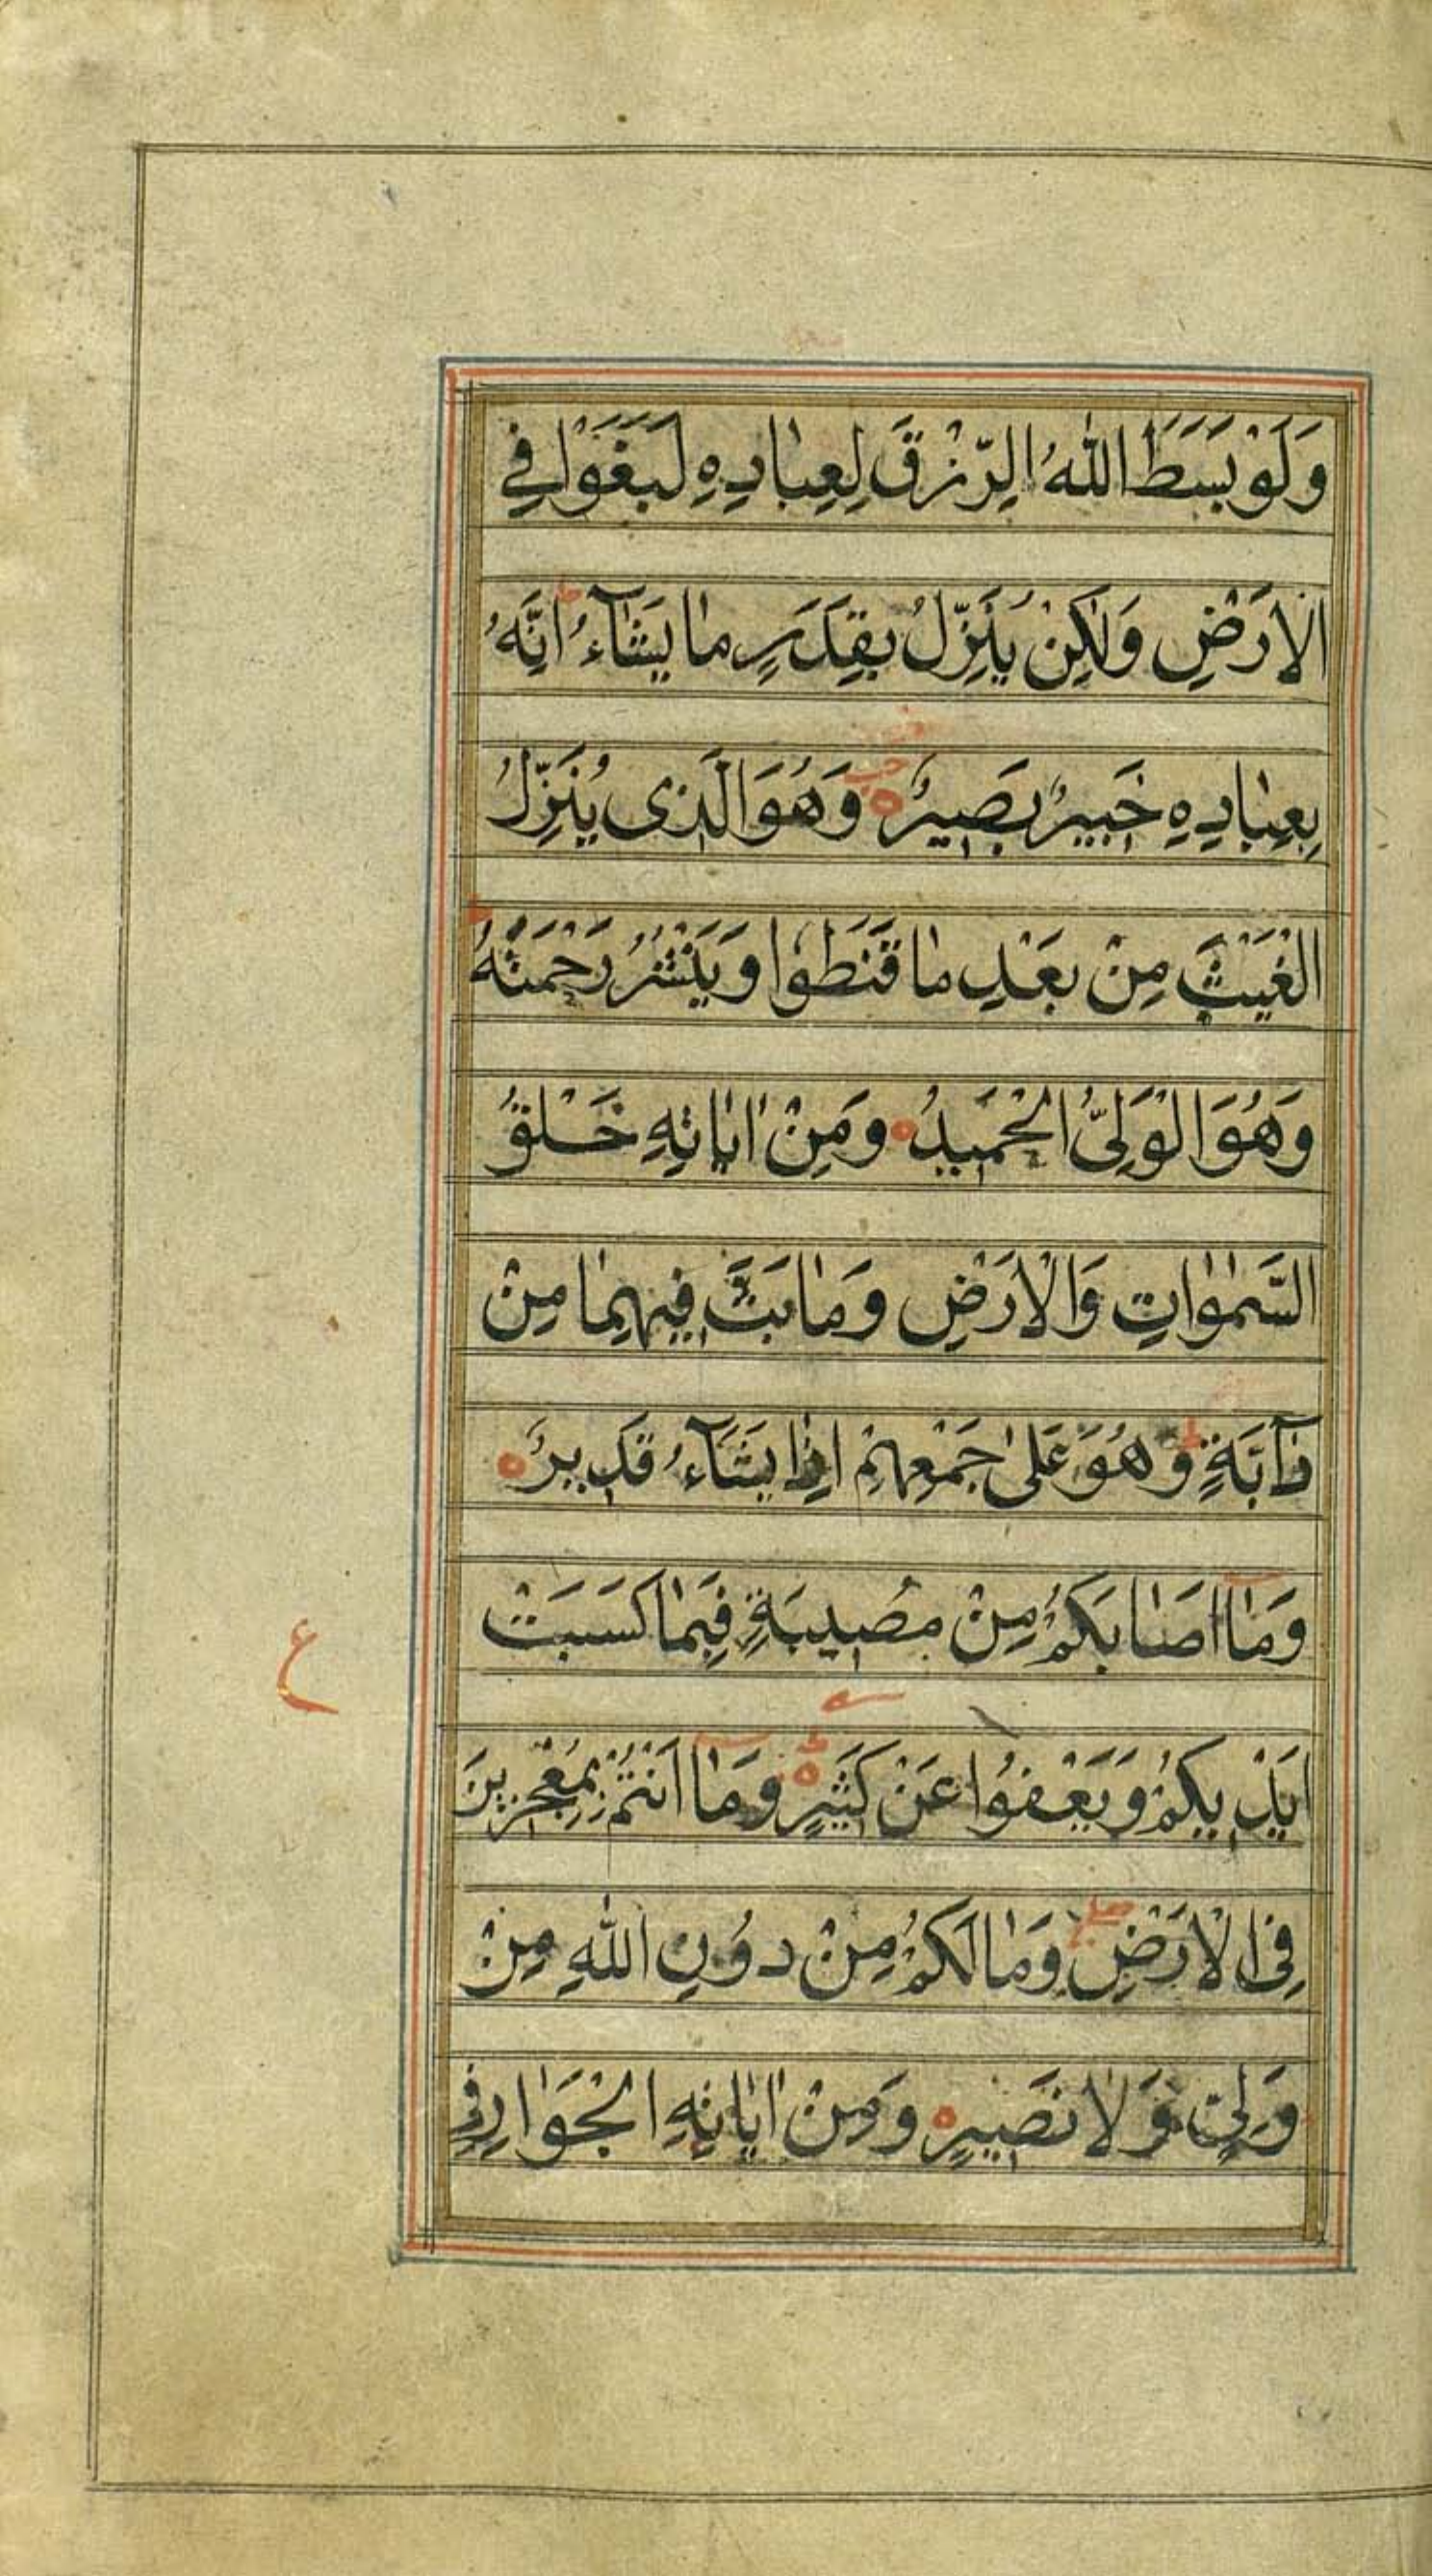 وَلَوْ بَسَطَ اللّٰهُ الرِّزْقَ لِعِبٰادِهِ لَبَغَوْا فِي
الْاَرْضِ وَلٰكِنْ يُنَزِّلُ بِقَدَرٍ مٰا يَشٰٓاءُ ط اِنَّهُ
بِعِبٰادِهِ خَبِيرٌ بَصِيرٌ ه وَهُوَ الَّذِى يُنَزِّلُ
الْغَيْثَ مِنْ بَعْدِ مٰا قَنَطُوا وَيَنْشُرُ رَحْمَتَهُ ط
وَهُوَ الْوَلِىُّ الْحَمِيدُ ه وَمِنْ اٰيٰاتِهِ خَلْقُ
السَّمٰوٰاتِ وَالْاَرْضِ وَمٰا بَثَّ فِيهِمٰا مِنْ
دٰٓابَّةٍ ط وَهُوَ عَلٰى جَمْعِهِمْ اِذٰا يَشٰٓاءُ قَدِيرٌ ه
وَمٰٓا اَصٰابَكُمْ مِنْ مُصِيبَةٍ فَبِمٰا كَسَبَتْ
اَيْدِيكُمْ وَيَعْفُوا عَنْ كَثِيرٍ ه ط وَمٰٓا اَنْتُمْ بِمُعْجِزِينَ
ع
فِى الْاَرْضِ صلے وَمٰا لَكُمْ مِنْ دُونِ اللّٰهِ مِنْ
وَلِيٍّ وَلٰا نَصِيرٍ ه وَمِنْ اٰيٰاتِهِ الْجَوٰارِ فِي